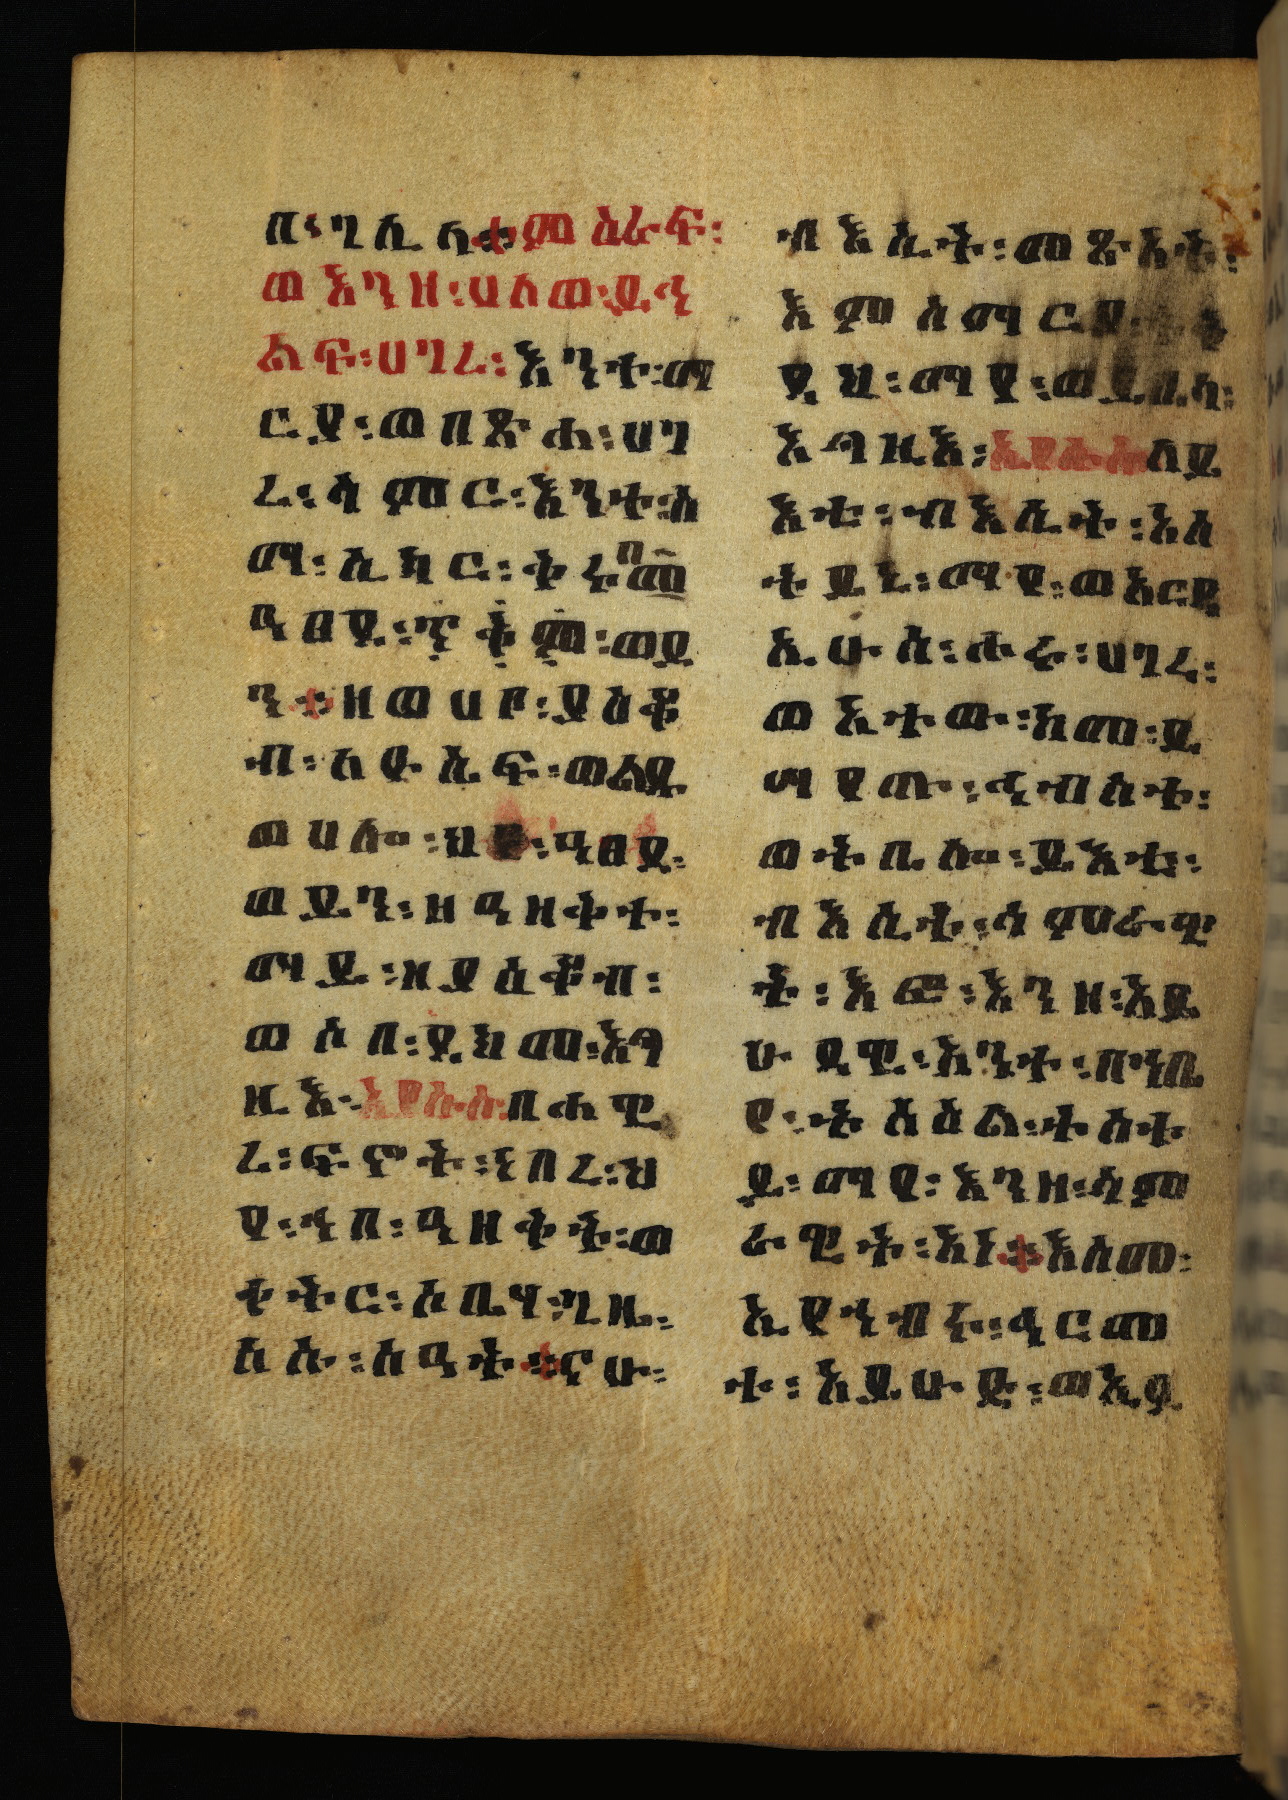 በ፡ገሊላ፨ምዕራፍ፡
ወእንዘ፡ሀለወ፡ይኅ
ልፍ፡ሀገረ፡እንተ፡ማ
ርያ፡ወበጽሐ፡ሀገ
ረ፡ሳምር፡እንተ፡ስ
ማ፡ሲካር፡ቅሩበ
ዓፀደ፡ጥቅም፡ወይ
ን፨ዘወሀቦ፡ያዕቆ
ብ፡ለዮሴፍ፡ወልዱ
ወሀሎ፡ህየ፡ዓፀደ፡
ወይን፡ዘዓዘቅተ፡
ማይ፡ዘያዕቆብ፡
ወሶበ፡ደክመ፡እግ
ዚእ፡ኢየሱስ፡በሐዊ
ረ፡ፍኖት፡ነበረ፡ህ
የ፡ኀበ፡ዓዘቅት፡ወ
ቀትር፡ሶቤሃ፡ጊዜ፡
ስሱ፡ሰዓት፨ናሁ፡
ብእሲት፡መጽአት፡
እምሰማርያ፡
ይህ፡ማየ፡ወይቤላ፡
እግዚእ፡ኢየሱስ፡ለይ
እቲ፡ብእሲት፡አስ
ትይኒ፡ማየ፡ወአርዳ
ኢሁሰ፡ሖሩ፡ሀገረ፡
ወአተዉ፡ከመ፡ይ
ሣየጡ፡ኅብስተ፡
ወትቤሎ፡ይእቲ፡
ብእሲት፡ሳምራዊ
ት፡እፎ፡እንዘ፡አይ
ሁዳዊ፡አንተ፡በኀቤ
የ፡ትስእል፡ትስተ
ይ፡ማየ፡እንዘ፡ሳም
ራዊት፡አነ፨እስመ፡
ኢየኀብሩ፡ዲርመ
ተ፡አይሁድ፡ወኢይ